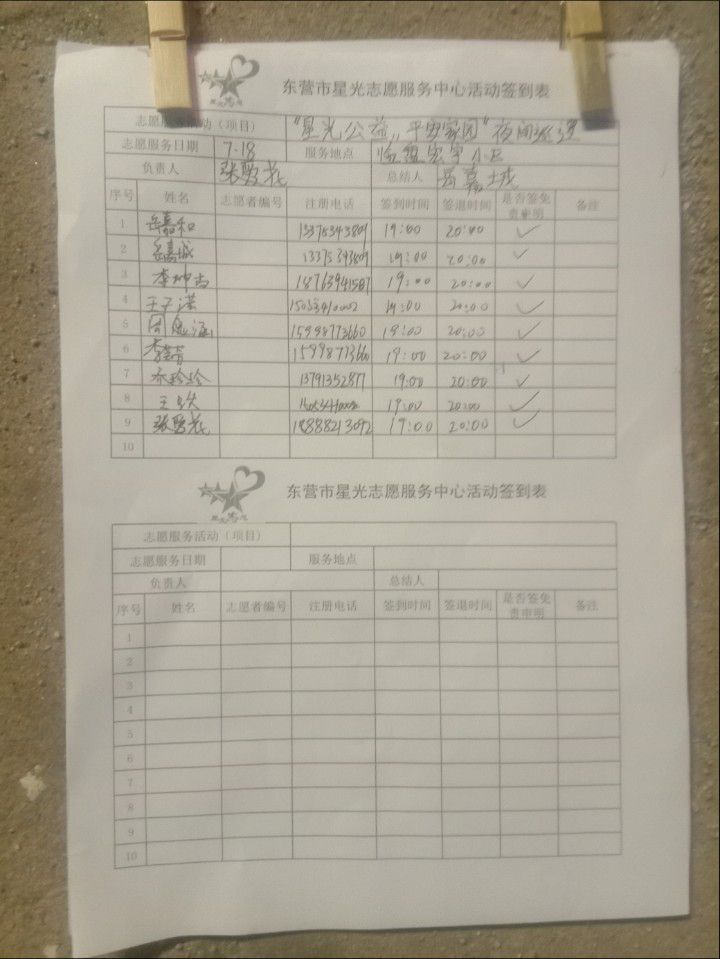 东营市星光志愿服务中心活动签到表
志愿服务活动（项目） "星光公益，平安家园"夜间巡逻
志愿服务日期 7-18 服务地点 小区
负责人 张 花 总结人 岳嘉城
序号 姓名 志愿者编号 注册电话 签到时间 签退时间 是否签免责申明 备注
1 岳嘉和 19:00 20:00 ✓
2 岳嘉城 19:00 20:00 ✓
3 李坤 18763941587 19:00 20:00 ✓
4 王子 19:00 20:00 ✓
5 周 涵 15998773660 19:00 20:00 ✓
6 李 1599877366 19:00 20:00 ✓
7 珍珍 13791352877 19:00 20:00 ✓
8 王 19:00 20:00 ✓
9 张 花 18888213092 19:00 20:00 ✓
10
东营市星光志愿服务中心活动签到表
志愿服务活动（项目）
志愿服务日期 服务地点
负责人 总结人
序号 姓名 志愿者编号 注册电话 签到时间 签退时间 是否签免责申明 备注
1
2
3
4
5
6
7
8
9
10